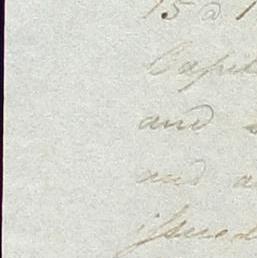 15 @ 1
Capit
and
and a
issued